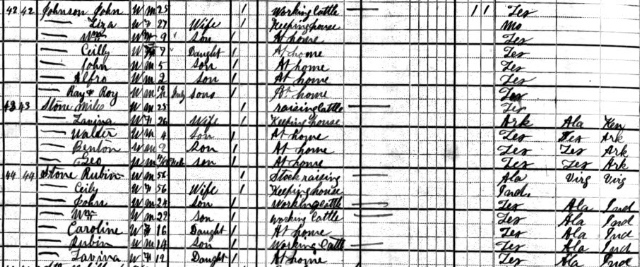 42 42 Johnson John W M 25 1 Working Cattle 1 1 Tex
— Liza W F 27 Wife 1 Keeping house Mo
— Wm W M 9 Son 1 At home Tex
— Ceilly W F 7 Daught 1 At home Tex
— John W M 5 Son 1 At home Tex
— Alfro W M 2 Son 1 At home Tex
— Ray & Roy W M July Sons 1 At home Tex
43 43 Stone Miles W M 1 raising Cattle Tex
— Lavina W F 26 Wife 1 Keeping house Ark Ala Ken
— Walter W M 4 Son 1 At home Tex Tex Ark
— Benton W M 2 Son 1 At home Tex Tex Ark
— Geo W M Son 1 At home Tex Tex Ark
44 44 Stone Rubin W M 56 1 Stock raising Ala Virg Virg
— Ceily W F 56 Wife 1 Keeping house Ind.
— John W M 24 Son 1 Working Cattle Tex Ala Ind
— Wm W M 22 Son 1 Working Cattle Tex Ala Ind
— Caroline W F 16 Daught 1 At home Tex Ala Ind
— Rubin W M 14 Son 1 Working Cattle Tex Ala Ind
— Lavina W F 12 Daught 1 At home Tex Ala Ind